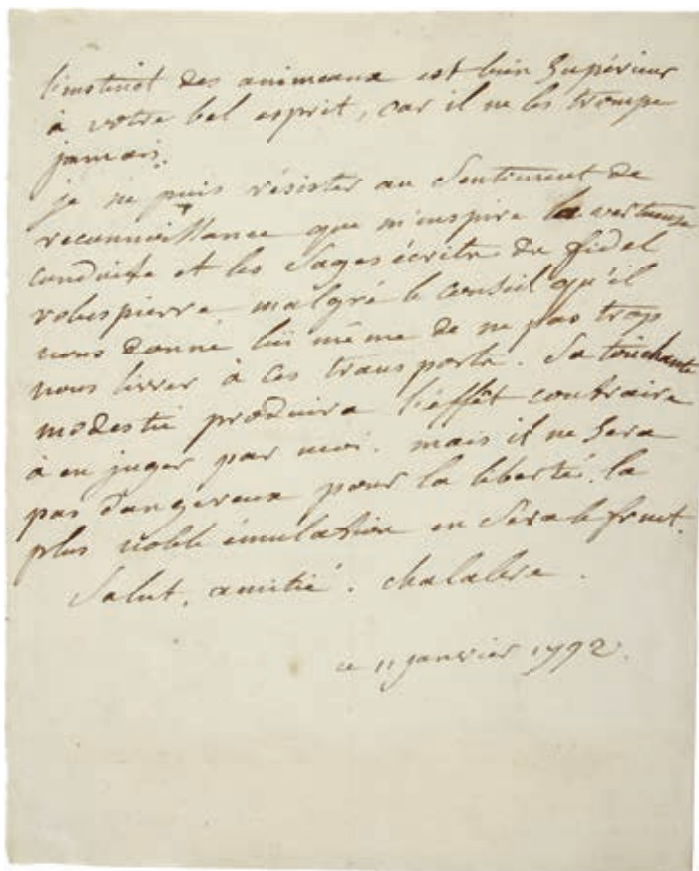 l'instinct des animeaux est bien Supérieur
à votre bel esprit, car il ne les trompe
jamais.
je ne puis résister au Sentiment de
reconnoissance que m'inspire la vertueuse
conduite et les Sages écrits de fidel
robespierre malgré le conseil qu'il
nous donne lui même de ne pas trop
nous livrer à ces transports. Sa touchante
modestie produira l'éffêt contraire
à en juger par moi. mais il ne Sera
pas dangereux pour la liberté. la
plus noble émulation en Sera le fruit.
Salut, amitié. chalabre.
ce 11 janvier 1792.